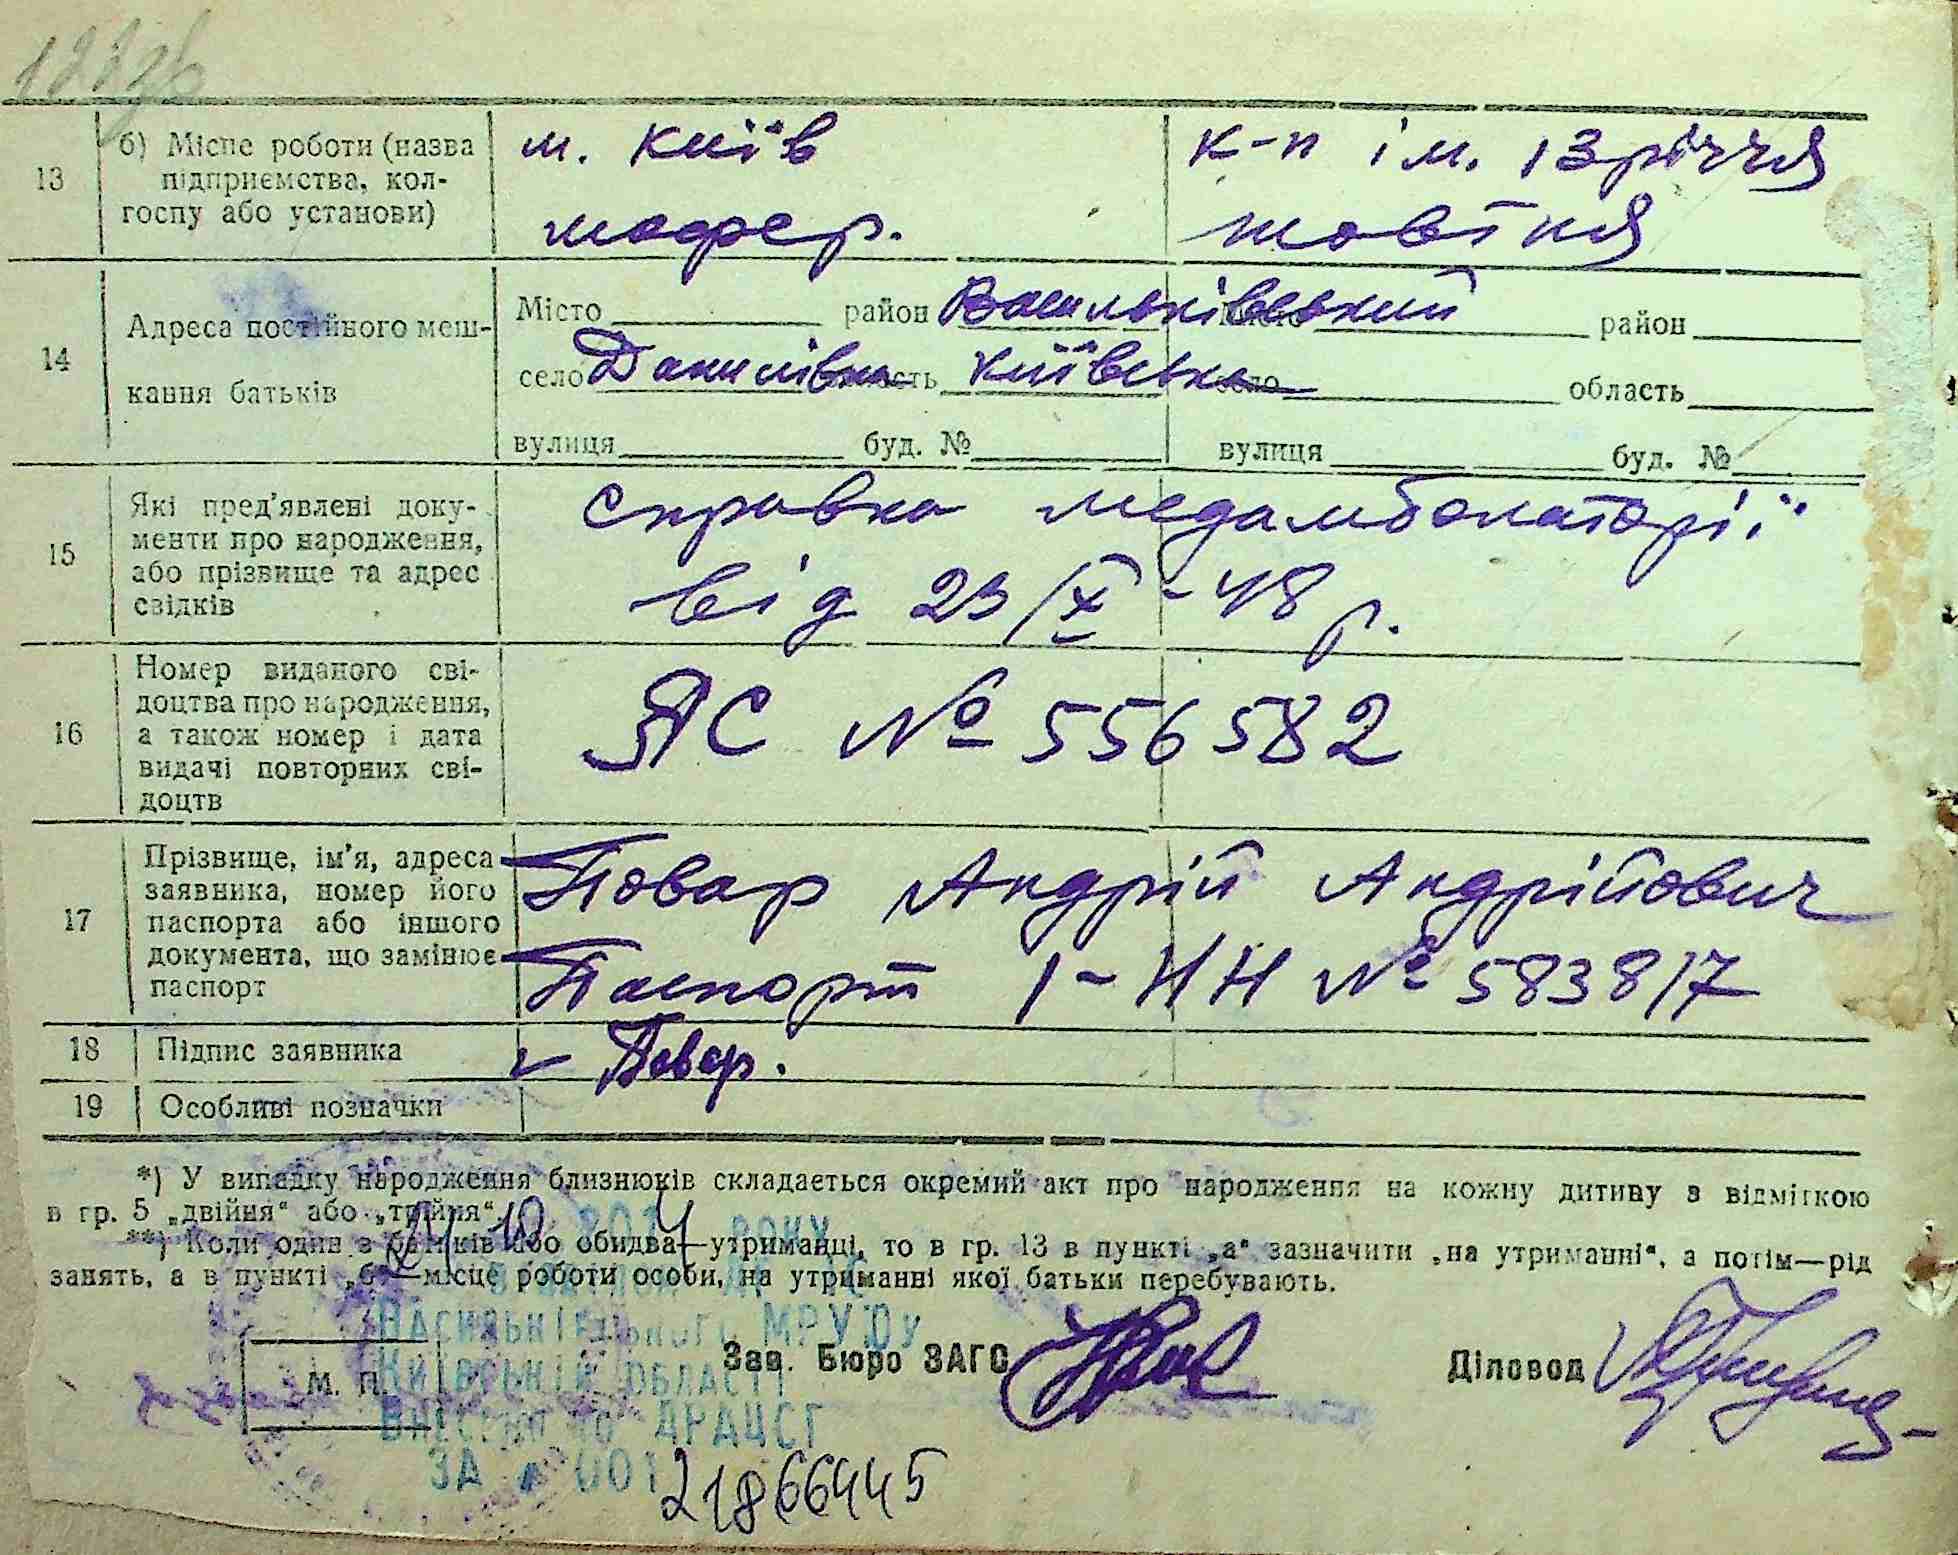 13 б) Місце роботи (назва підприємства, колгоспу або установи)
м. Київ
шофер.
к-п ім. 13 річчя
жовтня
14 Адреса постійного мешкання батьків
Місто район Васильківський район
село Данилівка область Київська село область
вулиця буд. № вулиця буд. №
15 Які пред'явлені документи про народження, або прізвище та адрес свідків
справка медамболаторії
від 23/X - 48 р.
16 Номер виданого свідоцтва про народження, а також номер і дата видачі повторних свідоцтв
ЯС № 556582
17 Прізвище, ім'я, адреса заявника, номер його паспорта або іншого документа, що замінює паспорт
Повар Андрій Андрійович
Паспорт І-НН № 583817
18 Підпис заявника Повар.
19 Особливі позначки
*) У випадку народження близнюків складається окремий акт про народження на кожну дитину з відміткою
в гр. 5 „двійня“ або „трійня“.
**) Коли один з батьків або обидва—утриманці, то в гр. 13 в пункті „а“ зазначити „на утриманні“, а потім—рід
занять, а в пункті „б“—місце роботи особи, на утриманні якої батьки перебувають.
21 10 2014 року
Васильківського МРУЮ у
Київській області
Внесено до ДРАЦСГ
ЗА № 00121866445
М. П.
Зав. Бюро ЗАГС
Діловод